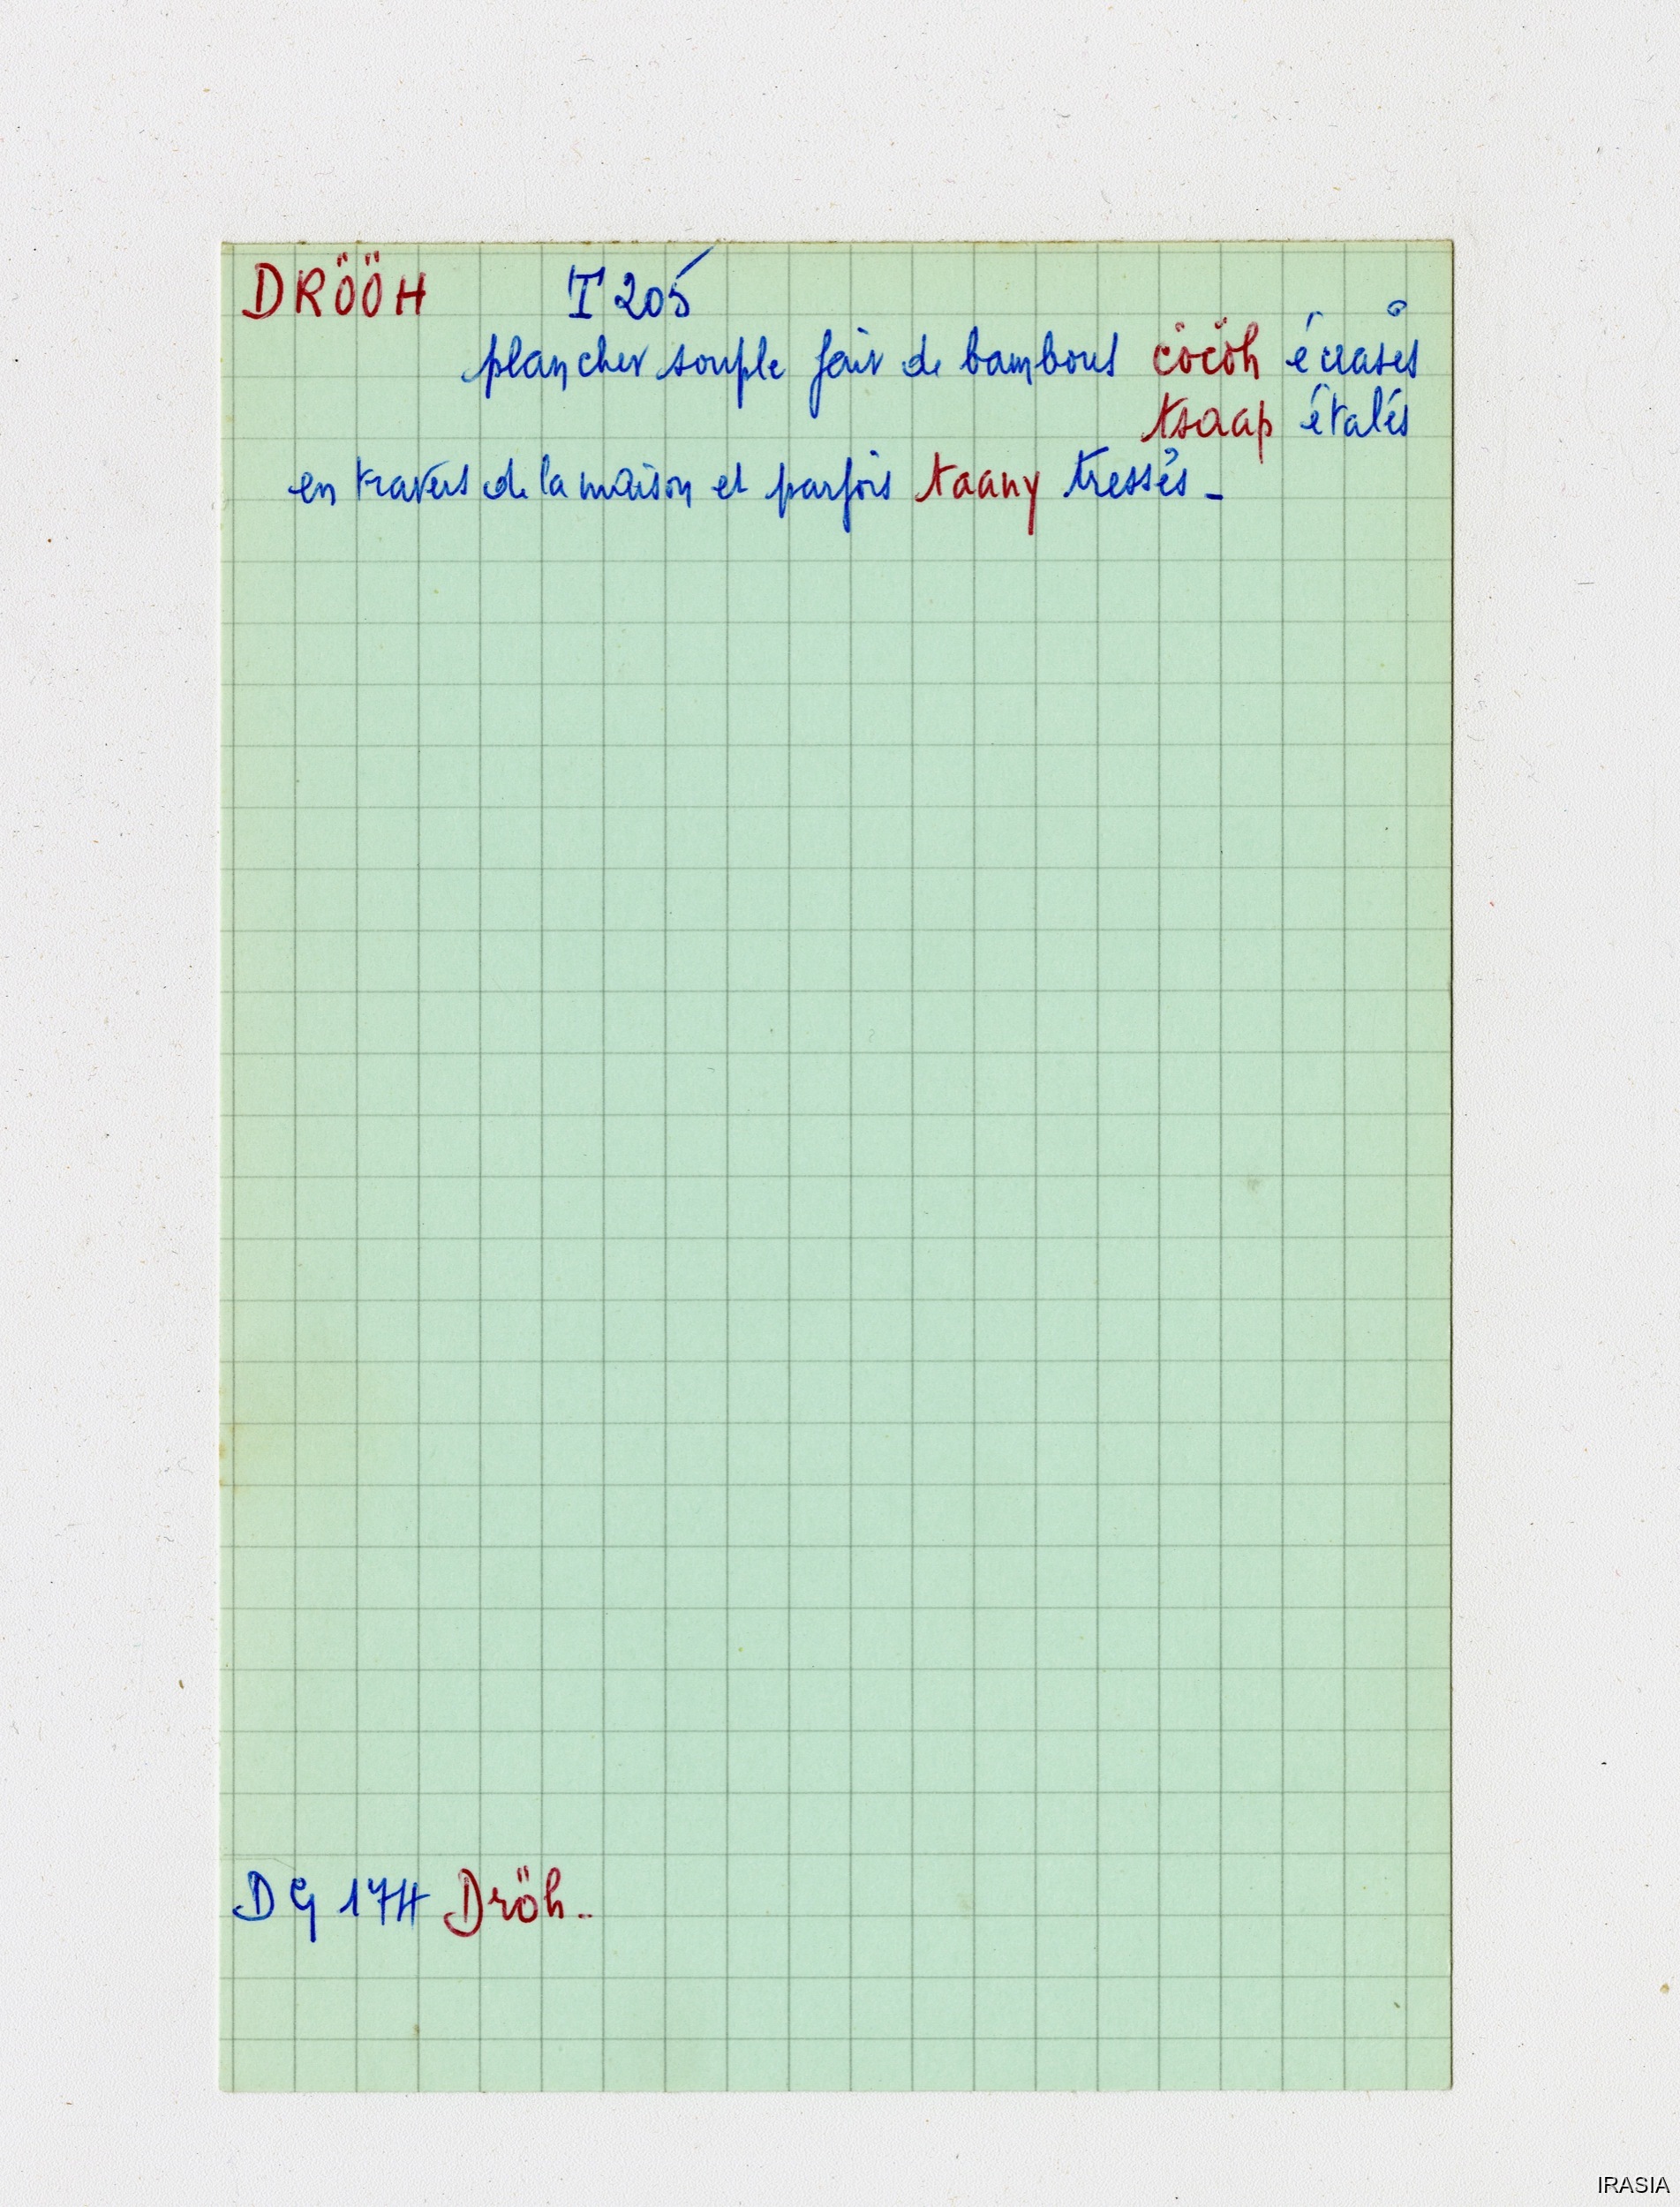 DRÖÖH T 205
plancher souple fait de bambous cöcöh écrasés
tsaap étalés
en travers de la maison et parfois taany tressés_
DG 174 Dröh..
IRASIA